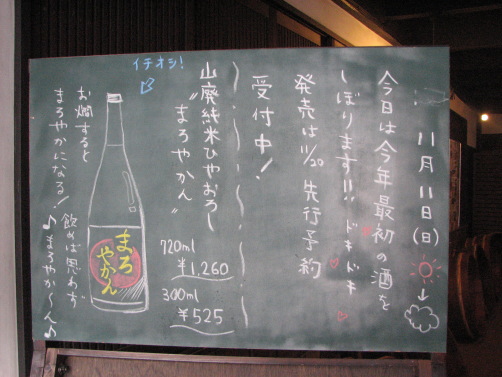 11月11日(日)
今日は今年最初の酒を
しぼります!!ドキドキ
発売は11/20 先行予約
受付中!
イチオシ!
山廃純米ひやおろし
"まろやかん"
720ml
¥1,260
300ml
¥525
まろ
やかん
お燗すると
まろやかになる!
飲めば思わず
♪まろやか〜ん♪